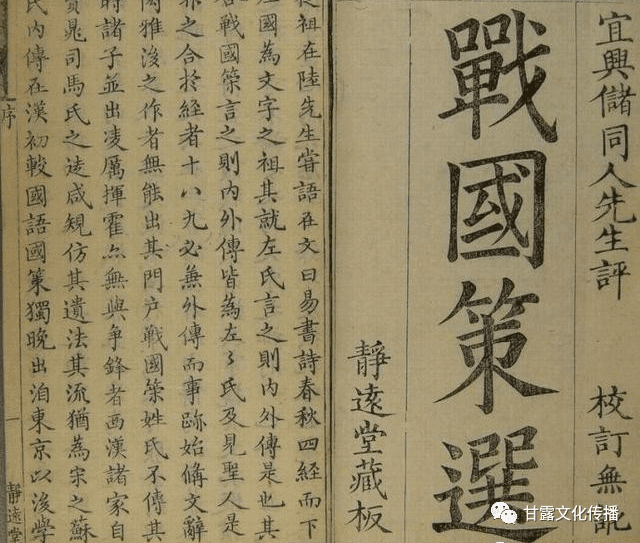 宜興儲同人先生評
校訂無
戰國策選
靜遠堂藏板
祖在陸先生嘗語在文曰易書詩春秋四經而下
左國為文字之祖其就左氏言之則內外傳是也其
戰國策言之則內外傳皆為左々氏及見聖人是
非之合於經者十八九必無外傳而事跡始備文辭
閎雅浚之作者無能出其門户戰國策姓氏不傳其
時諸子並出凌厲揮霍亦無與爭鋒者西漢諸家自
賈晁司馬氏之徒咸規仿其遺法其流猶為宋之蘇
氏內傳在漢初較國語國策獨晚出洎東京以浚學
序
一
靜遠堂
甘露文化传播